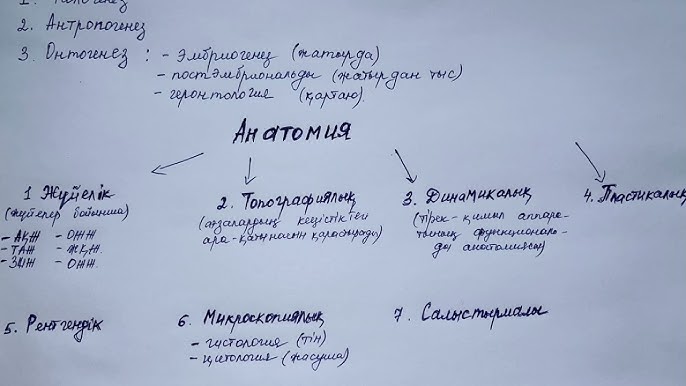 2. Антропогенез
3. Онтогенез : - эмбриогенез (жатырда)
- постэмбриональды (жатырдан тыс)
- геронтология (қартаю).
Анатомия
1 Жүйелік
(жүйелер бойынша)
- АҚЖ - ОЖЖ
- ТАЖ - ЖҚЖ.
- ЗШЖ - ОЖЖ.
2. Топографиялық
(ағзалардың кеңістіктегі
ара-қатынасын қарастырады)
3. Динамикалық
(тірек-қимыл аппара-
тының функционал-
ды анатомиясы)
4. Пластикалық
5. Рентгендік
6. Микроскопиялық
- гистология (тін)
- цитология (жасуша)
7. Салыстырмалы